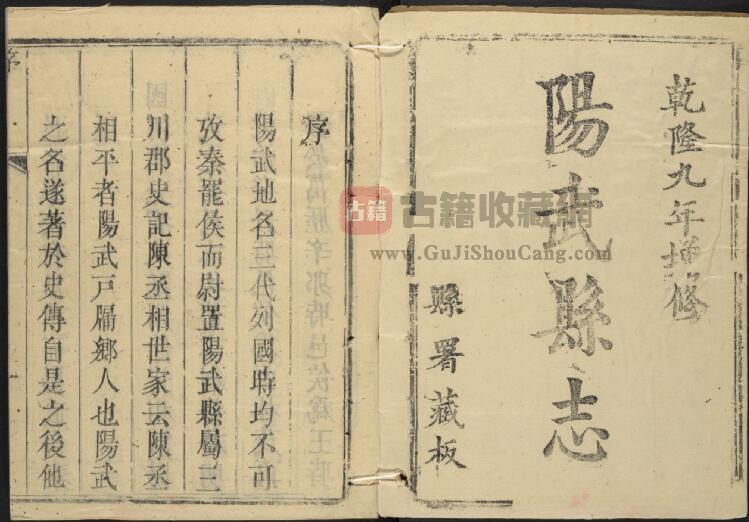 乾隆九年增修
陽武縣志
縣署藏板
序
陽武地名三代列國時均不可
攷秦罷侯而尉置陽武縣屬三
川郡史記陳丞相世家云陳丞
相平者陽武戶牖鄉人也陽武
之名遂著於史傳自是之後他
序
古籍
古籍收藏网
www.GuJiShouCang.com